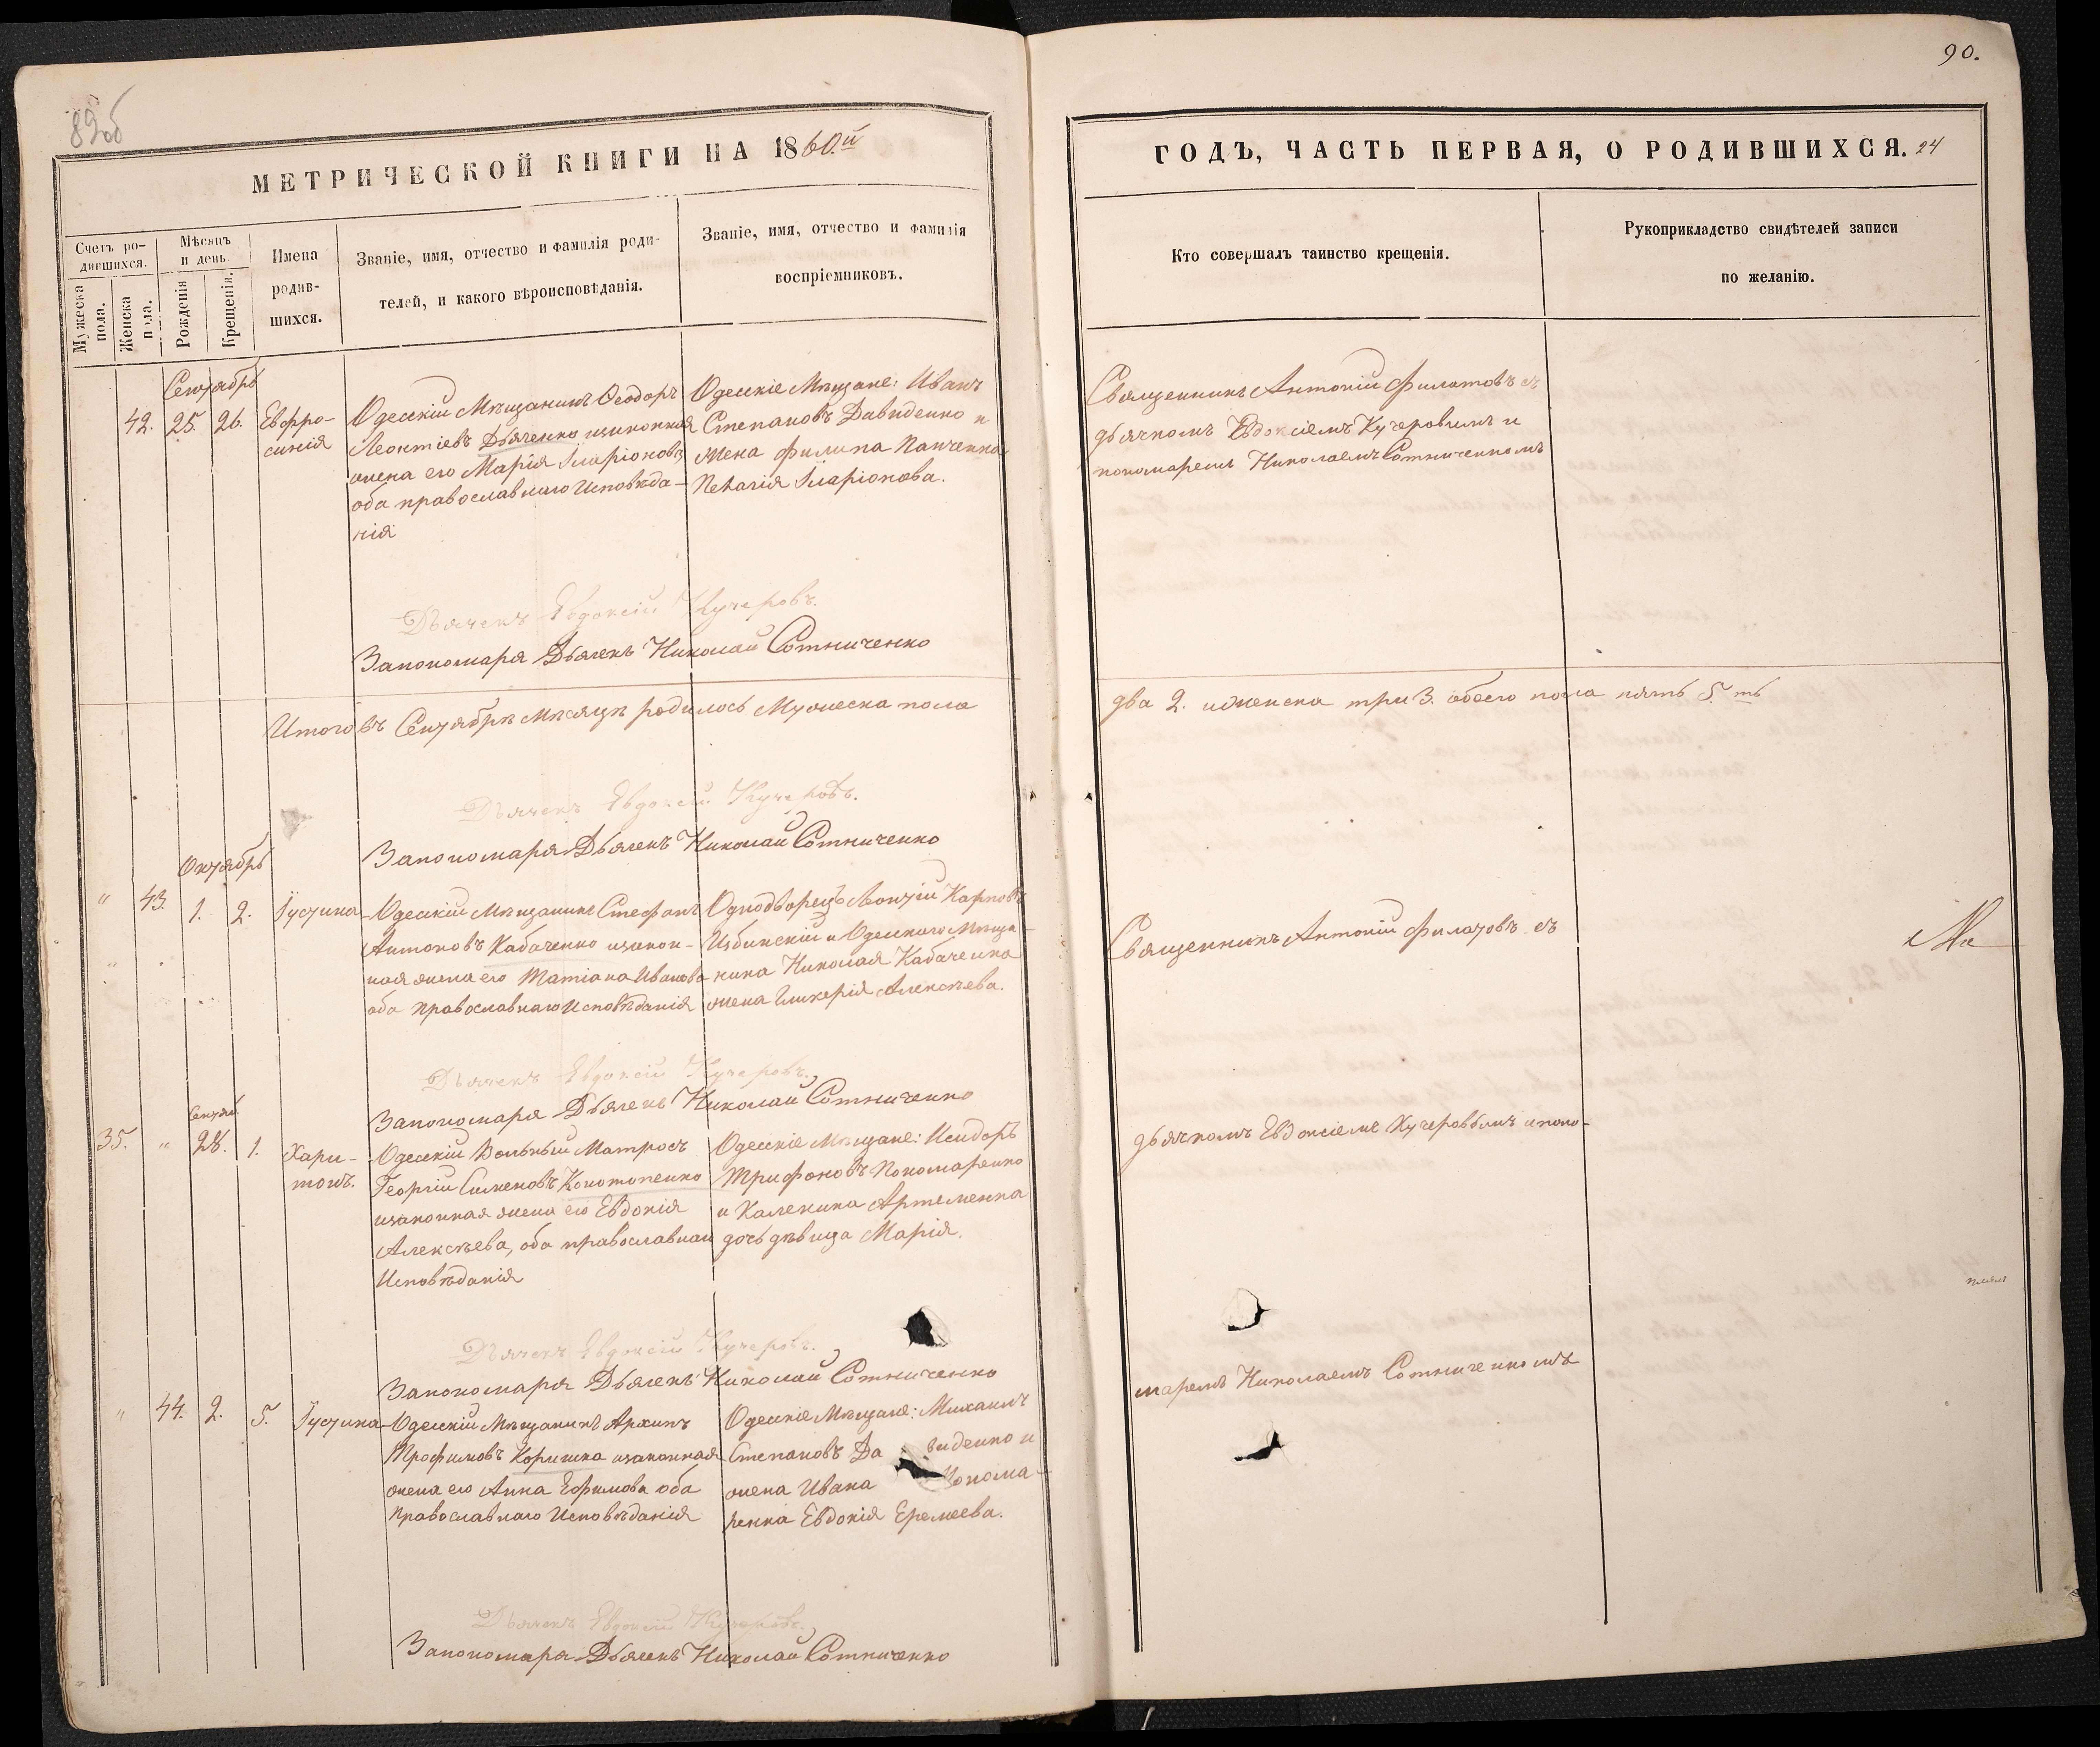 89об
МЕТРИЧЕСКОЙ КНИГИ НА 1860.й
Счетъ ро-
дившихся.
Мужеска
пола.
Женска
пола.
Мѣсяцъ
и день.
Рожденія
Крещенія.
Имена
родив-
шихся.
Званіе, имя, отчество и фамилія роди-
телей, и какого вѣроисповѣданія.
Званіе, имя, отчество и фамилія
воспріемниковъ.
Сентябрь
42. 25. 26.
Евфро-
синія
Одесскій Мѣщанинъ Ѳеодоръ
Леонтіевъ Дьяченко изаконная
жена его Марія Иларіонова,
оба православнаго Исповѣда-
нія
Одесскіе Мѣщане: Иванъ
Степановъ Давиденко и
жена Филипа Панченка
Пелагія Иларіонова.
Дьячекъ Евдоксій Кучеровъ.
Запономаря Дьячекъ Николай Сотниченко
Итого въ Сентябрѣ Мѣсяцѣ родилось Мужеска пола
Дьячекъ Евдоксій Кучеровъ.
Запономаря Дьячекъ Николай Сотниченко
Октябрь
" 43. 1. 2.
Іустина
Одесскій Мѣщанинъ Стефанъ
Антоновъ Кабаченко изакон-
ная жена его Татіана Иванова
оба православнаго Исповѣданія
Однодворецъ Леонтій Карповъ
Избинскій и Одесскаго Мѣща-
нина Николая Кабаченка
жена Гликерія Алексѣева.
Дьячекъ Евдоксій Кучеровъ.
Запономаря Дьячекъ Николай Сотниченко
Сентяб.
35. " 28. 1.
Хари-
тонъ.
Одесскій Вольный Матросъ
Георгій Сименовъ Конотопенко
изаконная жена его Евдокія
Алексѣева, оба православнаго
Исповѣданія
Одесскіе Мѣщане: Исидоръ
Трифоновъ Пономаренко
и Каленика Артеменка
дочь дѣвица Марія.
Дьячекъ Евдоксій Кучеровъ.
Запономаря Дьячекъ Николай Сотниченко
" 44. 2. 5.
Іустина
Одесскій Мѣщанинъ Архипъ
Трофимовъ Коришка изаконная
жена его Анна Ефимова оба
православнаго Исповѣданія
Одесскіе Мѣщане: Михаилъ
Степановъ Давиденко и
жена Ивана Понома-
ренка Евдокія Еремеева.
Дьячекъ Евдоксій Кучеровъ.
Запономаря Дьячекъ Николай Сотниченко
90.
ГОДЪ, ЧАСТЬ ПЕРВАЯ, О РОДИВШИХСЯ. 24
Кто совершалъ таинство крещенія.
Рукоприкладство свидѣтелей записи
по желанію.
Священникъ Антоній Филатовъ съ
дьячкомъ Евдоксіемъ Кучеровымъ и
пономаремъ Николаемъ Сотниченкомъ
два 2. иженска три 3. обоего пола пять 5.ть
Священникъ Антоній Филатовъ съ
дьячкомъ Евдоксіемъ Кучеровымъ ипоно-
маремъ Николаемъ Сотниченкомъ